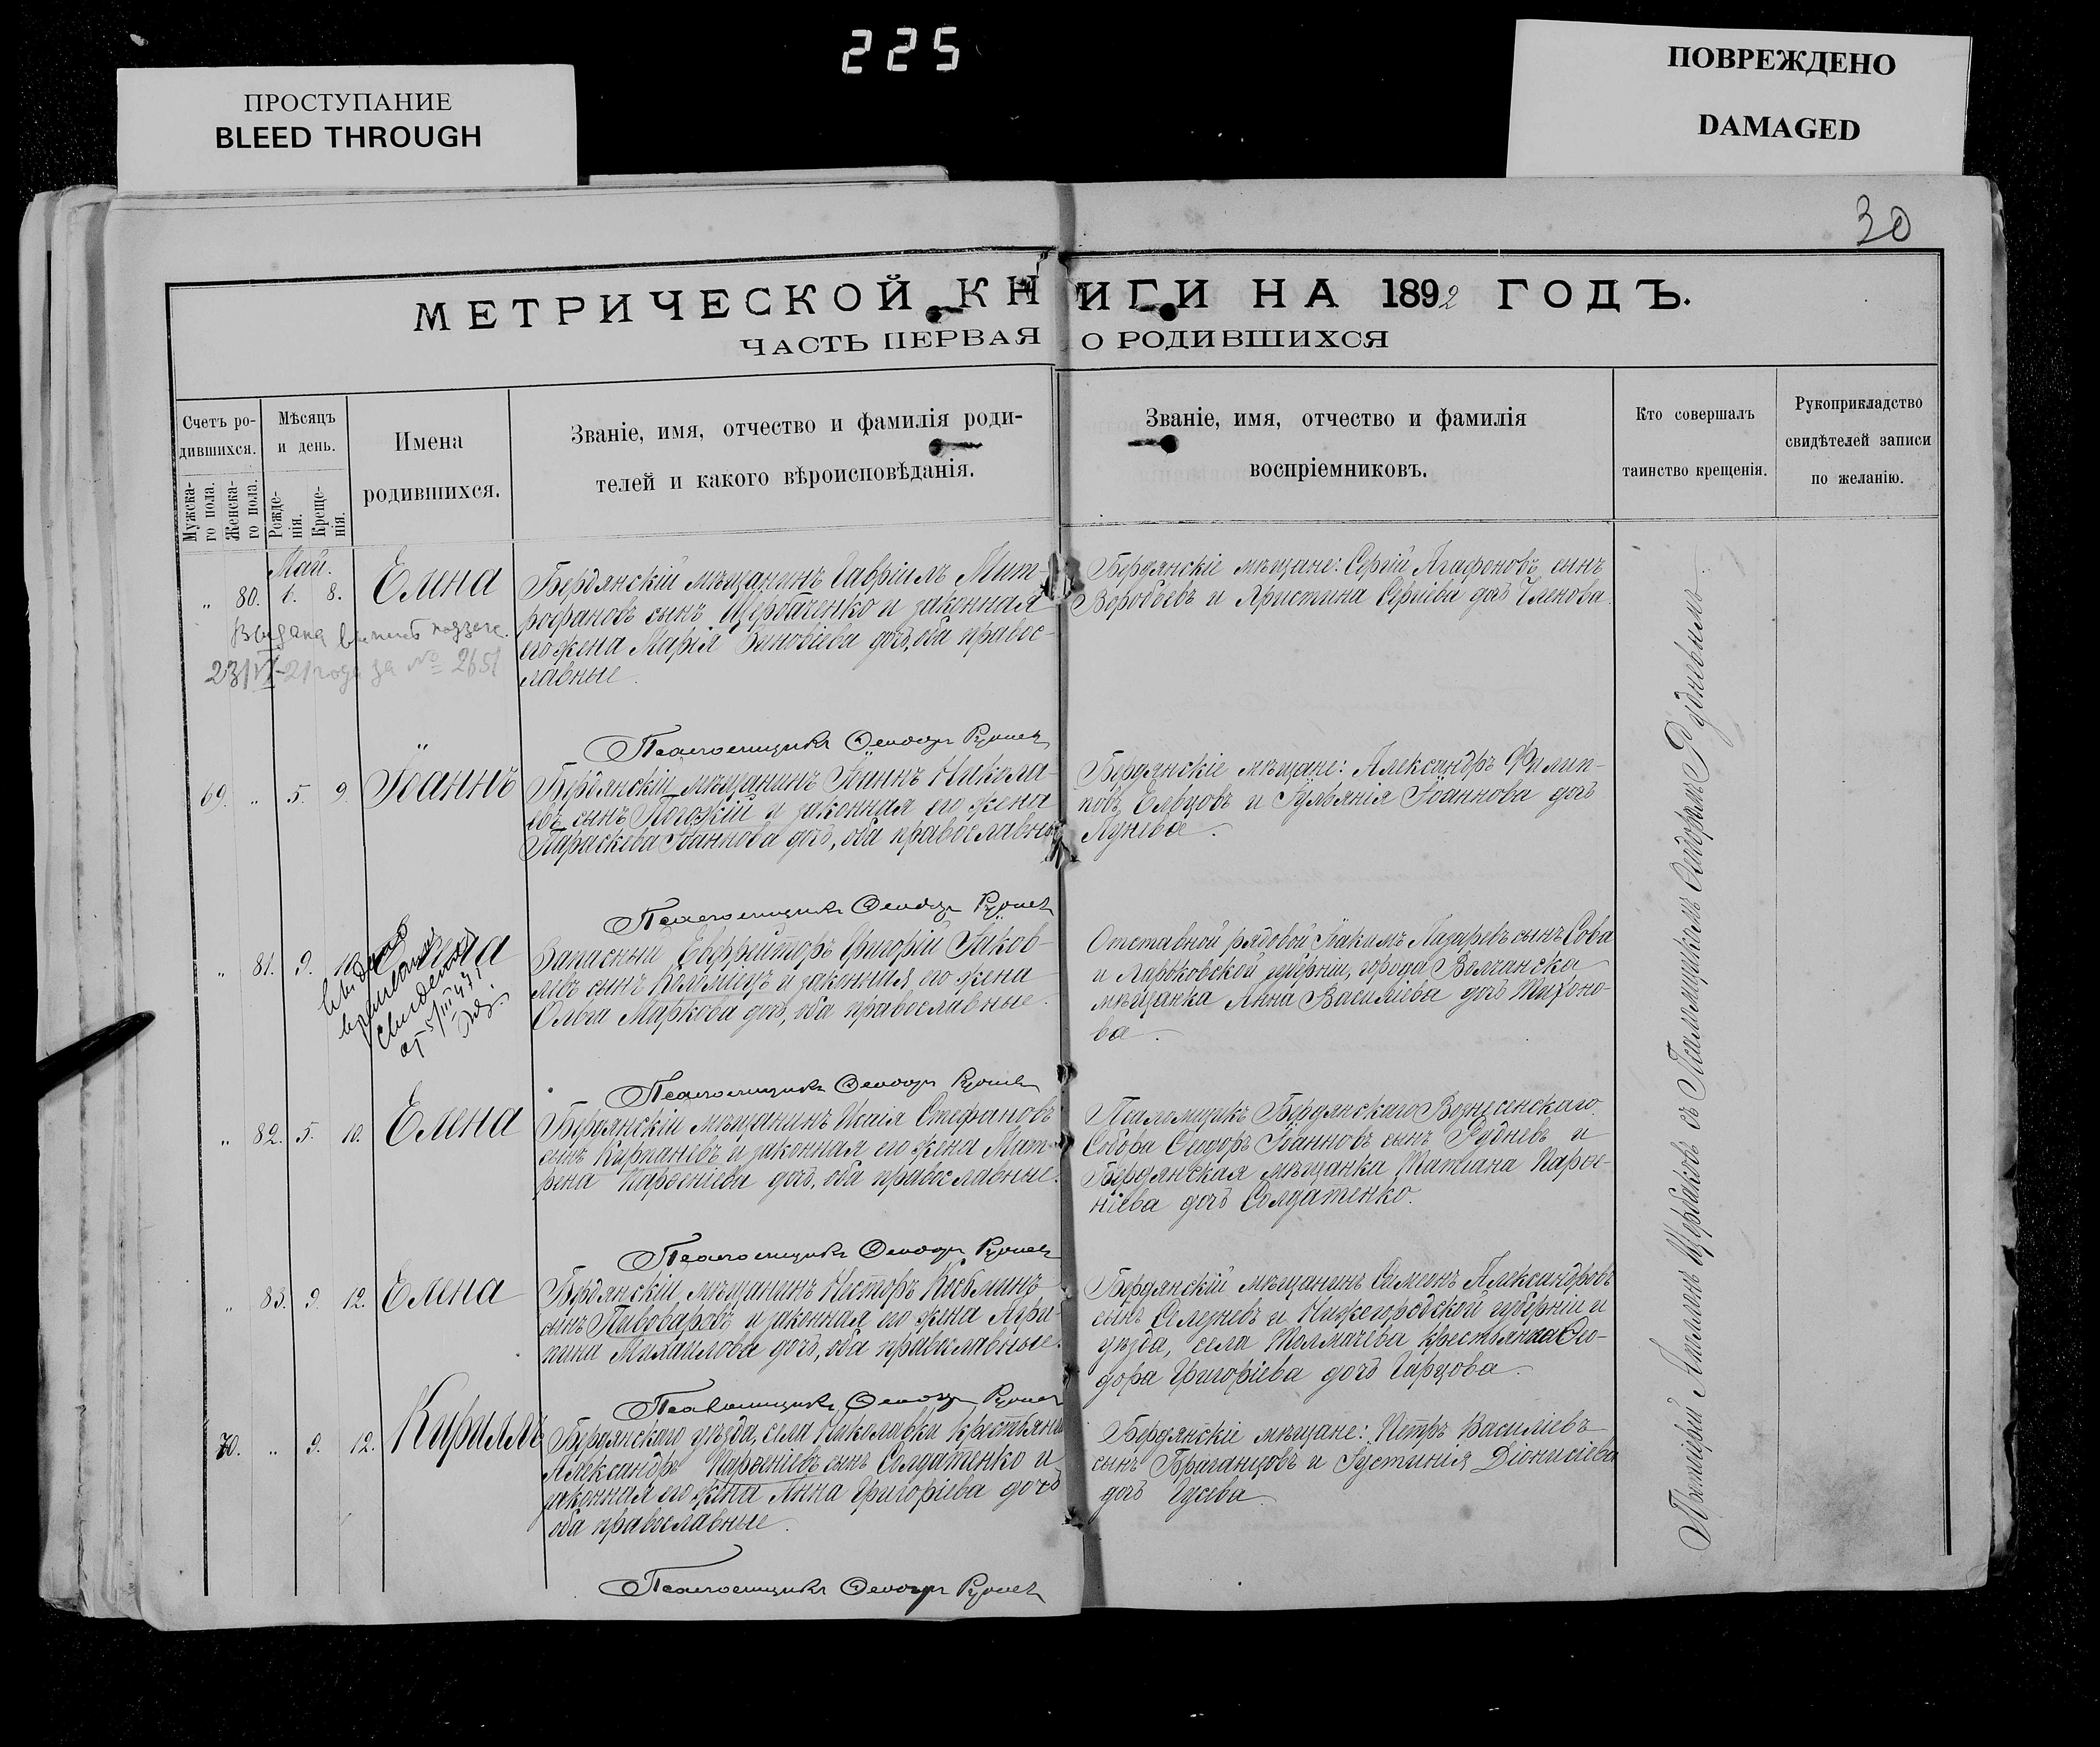 225
ПРОСТУПАНИЕ
BLEED THROUGH
ПОВРЕЖДЕНО
DAMAGED
30
МЕТРИЧЕСКОЙ КНИГИ НА 1892 ГОДЪ.
ЧАСТЬ ПЕРВАЯ О РОДИВШИХСЯ
Счетъ ро-
дившихся.
Мужска-
го пола.
Женска-
го пола.
Мѣсяцъ
и день.
Рожде-
нія.
Креще-
нія.
Имена
родившихся.
Званіе, имя, отчество и фамилія роди-
телей и какого вѣроисповѣданія.
Званіе, имя, отчество и фамилія
воспріемниковъ.
Кто совершалъ
таинство крещенія.
Рукоприкладство
свидѣтелей записи
по желанію.
Май.
„ 80. 6. 8. Елена
Выдана
23/VI-21 года за № 2651
Бердянскій мѣщанинъ Гавріилъ Мит-
рофановъ сынъ Щербаченко и законная
его жена Марія Зиновіева дочь, оба правос-
лавные.
Бердянскіе мѣщане: Сергій Агафоновъ сынъ
Воробьевъ и Христина Сергіева дочь Членова.
Псаломщикъ Феодоръ Рудневъ
69. „ 5. 9. Іоаннъ
Бердянскій мѣщанинъ Іоаннъ Никола-
евъ сынъ Погожій и законная его жена
Параскева Іоаннова дочь, оба православные
Бердянскіе мѣщане: Александръ Филип-
повъ Ельцовъ и Іуліанія Іоаннова дочь
Лунева.
Псаломщикъ Феодоръ Рудневъ
„ 81. 9. 10. Елена
Выдано
временное
свидет.
Запасный Ефрейторъ Григорій Іаков-
левъ сынъ Коломіецъ и законная его жена
Ольга Маркова дочь, оба православные.
Отставной рядовой Іоакимъ Лазаревъ сынъ Сова
и Харьковской губерніи, города Волчанска
мѣщанка Анна Василіева дочь Тихоно-
ва.
Псаломщикъ Феодоръ Рудневъ
„ 82. 5. 10. Елена
Бердянскій мѣщанинъ Исаія Стефановъ
сынъ Кирпаневъ и законная его жена Мат-
рена Парѳеніева дочь, оба православные.
Псаломщикъ Бердянскаго Вознесенскаго
Собора Ѳеодоръ Іоанновъ сынъ Рудневъ и
Бердянская мѣщанка Татіана Парѳе-
ніева дочь Солдатенко.
Псаломщикъ Феодоръ Рудневъ
„ 83. 9. 12. Елена
Бердянскій мѣщанинъ Несторъ Козьминъ
сынъ Пивоваровъ и законная его жена Агри-
пина Михаилова дочь, оба православные.
Бердянскій мѣщанинъ Симеонъ Александровъ
сынъ Селезневъ и Нижегородской губерніи и
уѣзда, села Толмачева крестьянка Ѳео-
дора Григоріева дочь Гарцова.
Псаломщикъ Феодоръ Рудневъ
70. „ 9. 12. Кириллъ
Бердянскаго уѣзда, села Николаевки крестьянинъ
Александръ Парѳеніевъ сынъ Солдатенко и
законная его жена Анна Григоріева дочь
оба православные.
Бердянскіе мѣщане: Петръ Василіевъ
сынъ Браганцовъ и Іустинія Діонисіева
дочь Гусева.
Псаломщикъ Феодоръ Рудневъ
Протоіерей Щербаковъ съ Псаломщикомъ Ѳеодоромъ Рудневымъ.